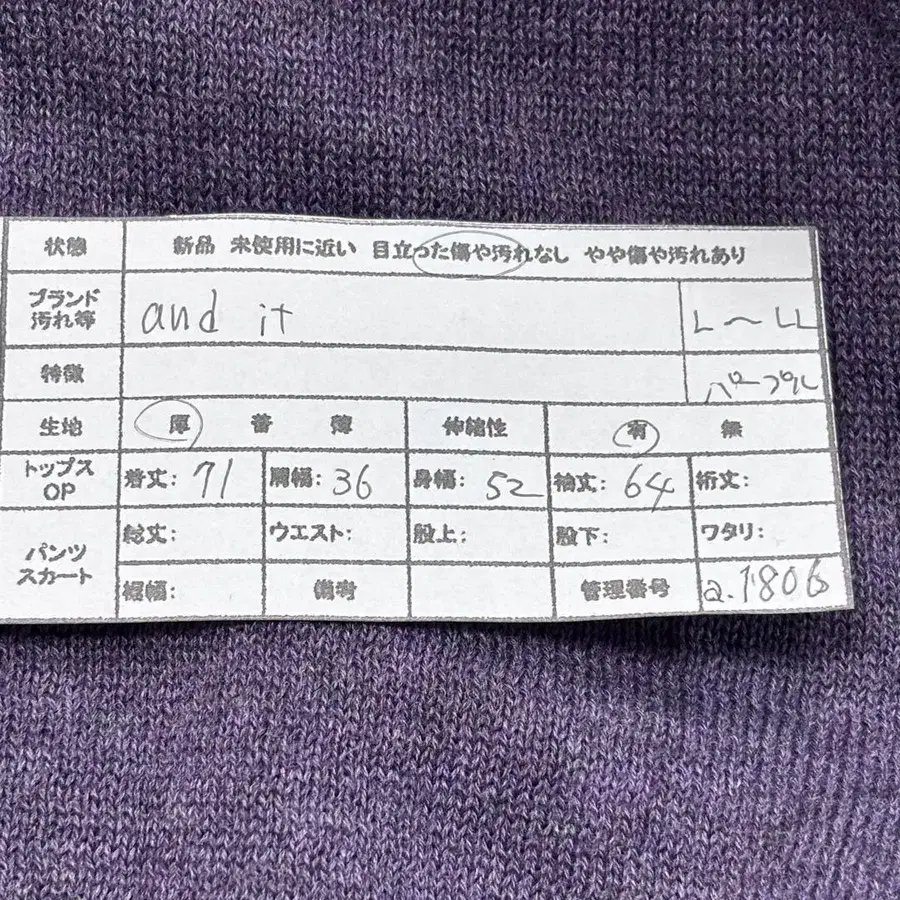 状態 新品 未使用に近い 目立った傷や汚れなし やや傷や汚れあり
ブランド
汚れ等 and it L〜LL
特徴 パープル
生地 厚 普 薄 伸縮性 有 無
トップス
OP 着丈: 71 肩幅: 36 身幅: 52 袖丈: 64 裄丈:
パンツ
スカート 総丈: ウエスト: 股上: 股下: ワタリ:
裾幅: 備考 管理番号 a.1806